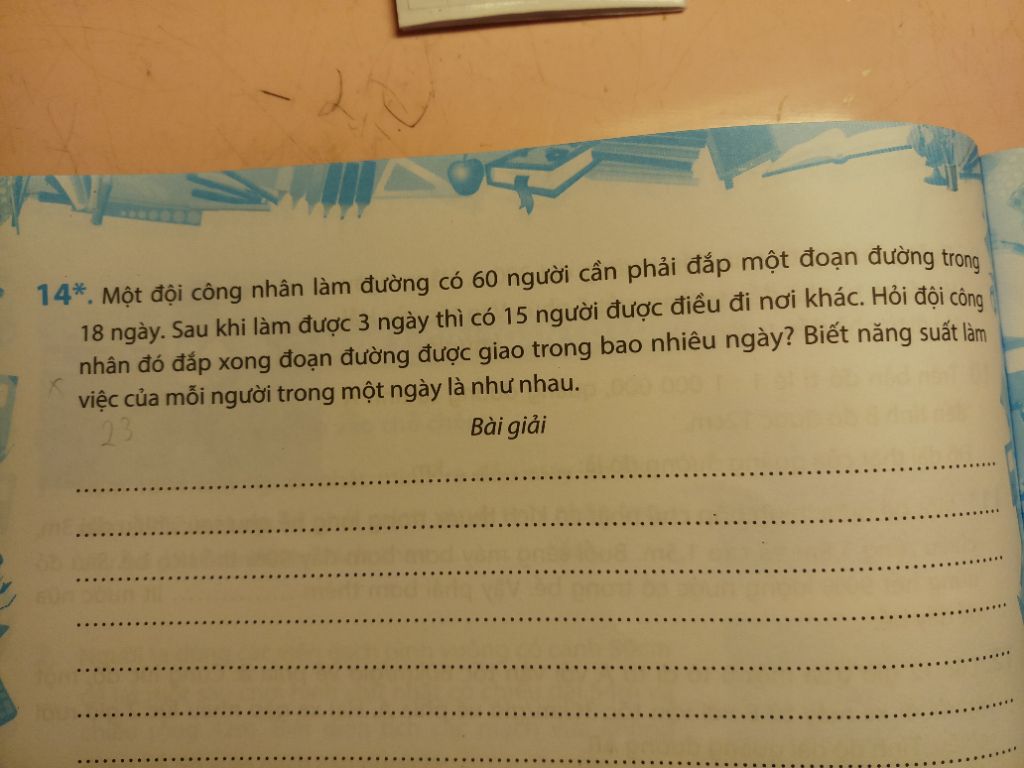 14*. Một đội công nhân làm đường có 60 người cần phải đắp một đoạn đường trong
18 ngày. Sau khi làm được 3 ngày thì có 15 người được điều đi nơi khác. Hỏi đội công
nhân đó đắp xong đoạn đường được giao trong bao nhiêu ngày? Biết năng suất làm
việc của mỗi người trong một ngày là như nhau.
23
Bài giải